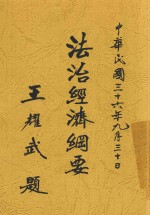 中華民國三十六年九月三十日
法治經濟綱要
王耀武題